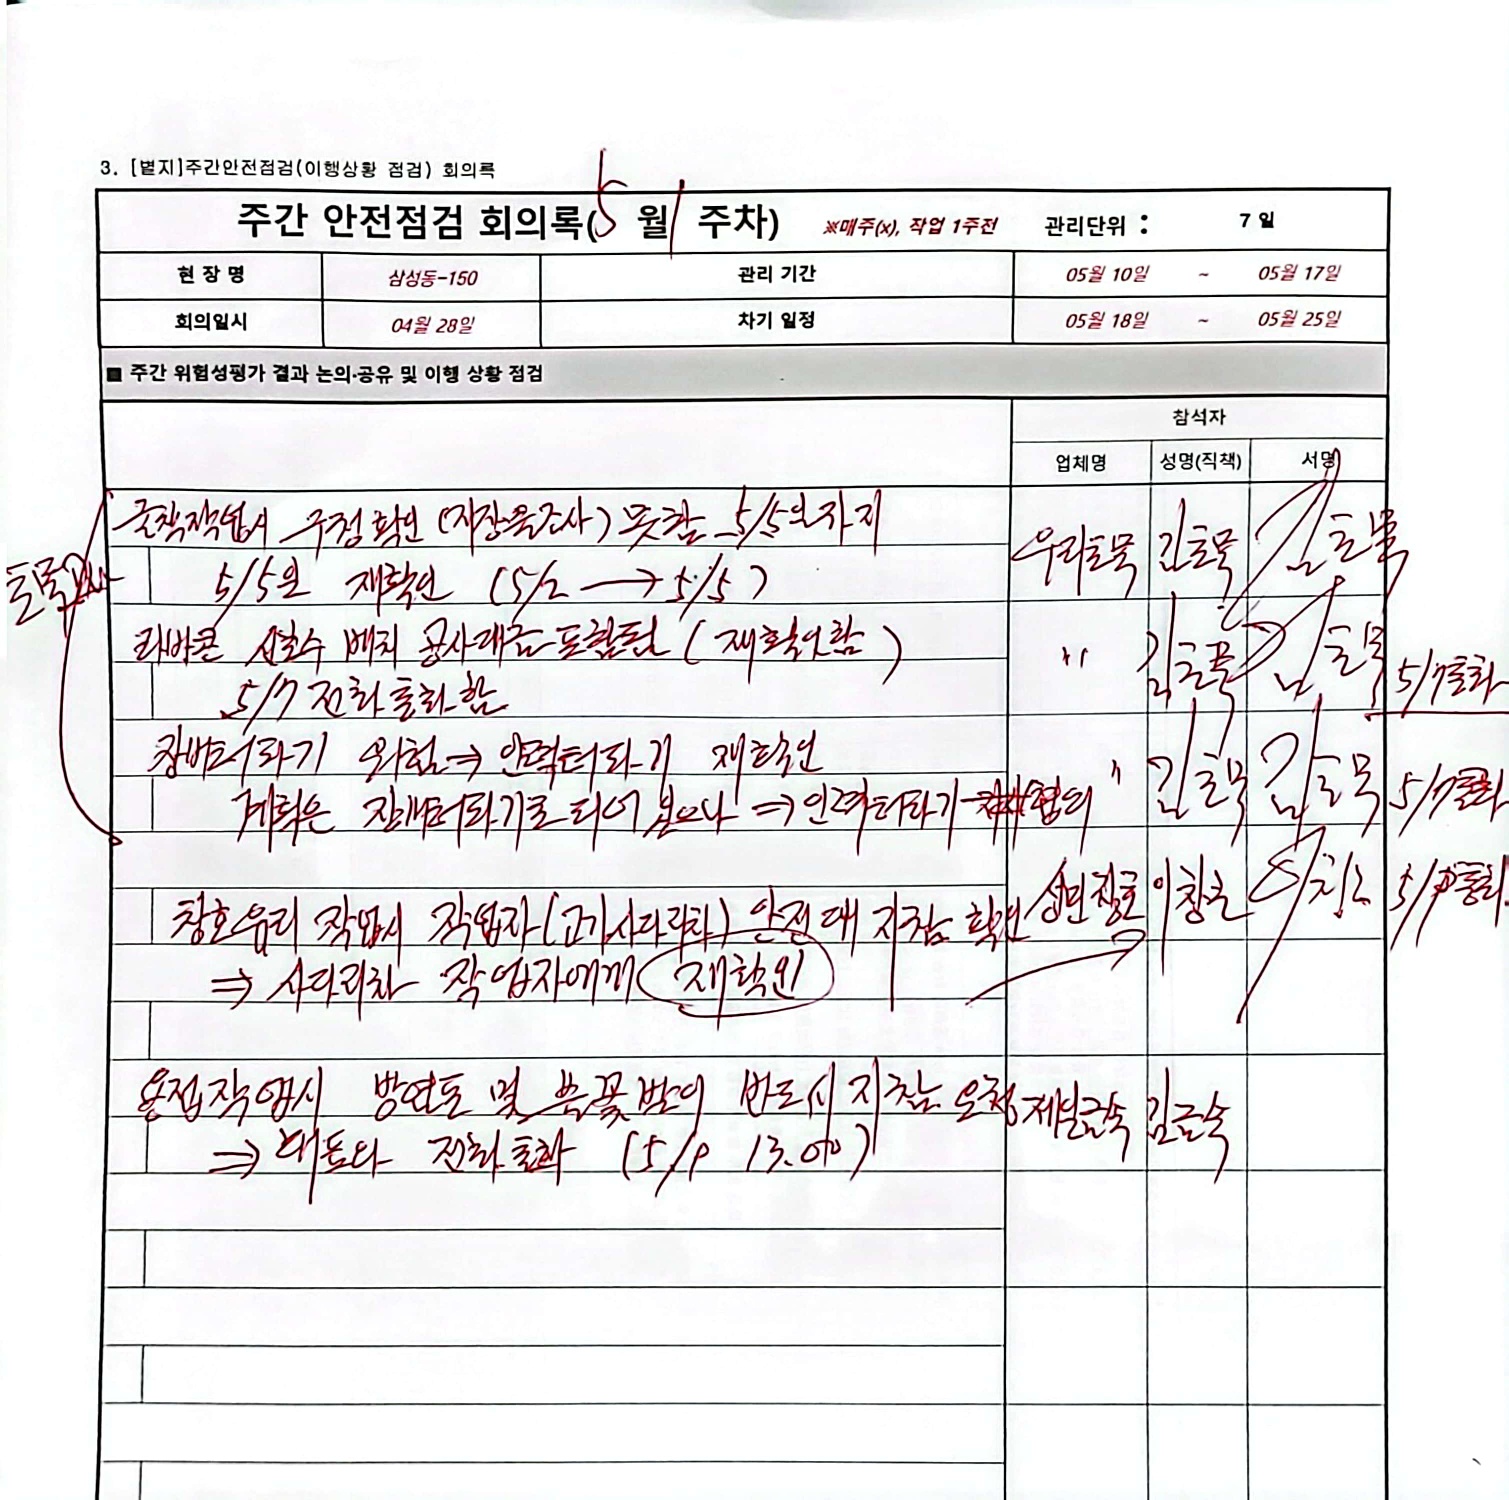 3. [별지]주간안전점검(이행상황 점검) 회의록
주간 안전점검 회의록(5 월 1 주차) ※매주(x), 작업 1주전 관리단위 : 7 일
현 장 명 삼성동-150 관리 기간 05월 10일 ~ 05월 17일
회의일시 04월 28일 차기 일정 05월 18일 ~ 05월 25일
■ 주간 위험성평가 결과 논의·공유 및 이행 상황 점검
참석자
업체명 성명(직책) 서명
굴착작업시 규정 확인 (지장물조사) 못함 5/5일까지
우리토목 김토목 김토목
토목공사
5/5일 재확인 (5/2 → 5/5)
래바콘 신호수 배치 공사대금 포함됨 (재확인함)
〃 김토목 김토목 5/7통화
5/7 전화 통화함
장비터파기 위험 ⇒ 인력터파기 재확인
계획은 장비터파기로 되어 있으나 ⇒ 인력터파기 협의
〃 김토목 김토목 5/7통화
창호유리 작업시 작업자(고가사다리차) 안전대 지참 확인
성민창호 이창호 이창호 5/9통화
⇒ 사다리차 작업자에게 재확인
용접작업시 방염포 및 불꽃받이 반드시 지참 요청
제일금속 김금속
⇒ 대표와 전화통화 (5/9 13.00)